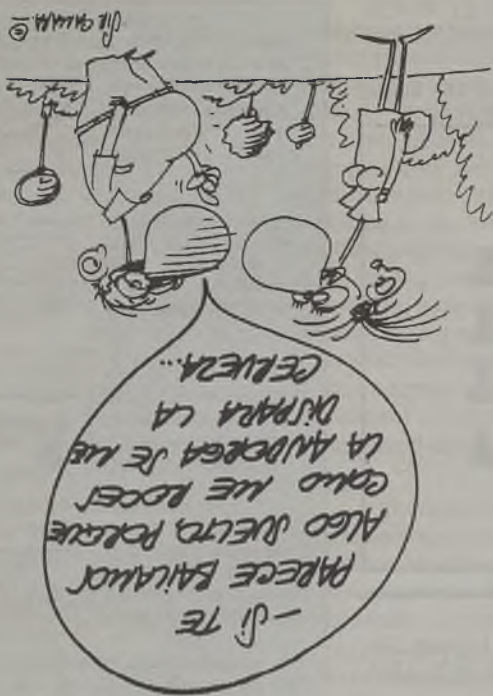 —Si TE
PARECE BAiLAMOS
ALGO SUELTO, PORQUE
COMO ME ROCES
LA ANDORGA SE ME
DiSPARA LA
CERVEZA...
SIR CAMARA. ©